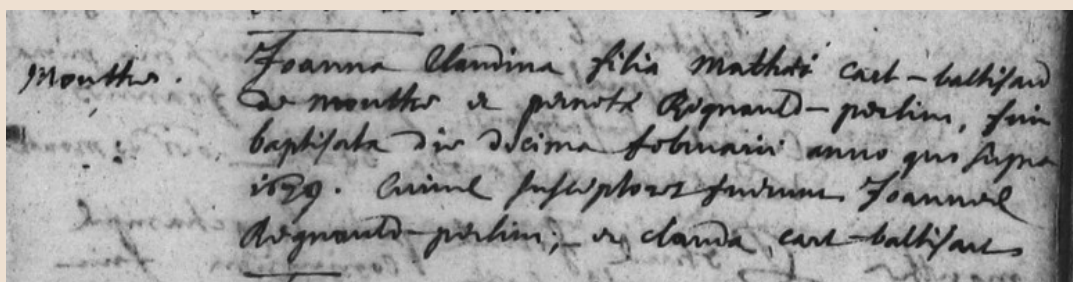 Mouthe. Joanna Claudina filia Mathei cart-baltisard
de mouthe et pernotæ Regnauld-perlin, fuit
baptisata die decima februarii anno quo supra
1659. Cuius susceptores fuerunt Joannes
Regnauld-perlin; et clauda cart-baltisart